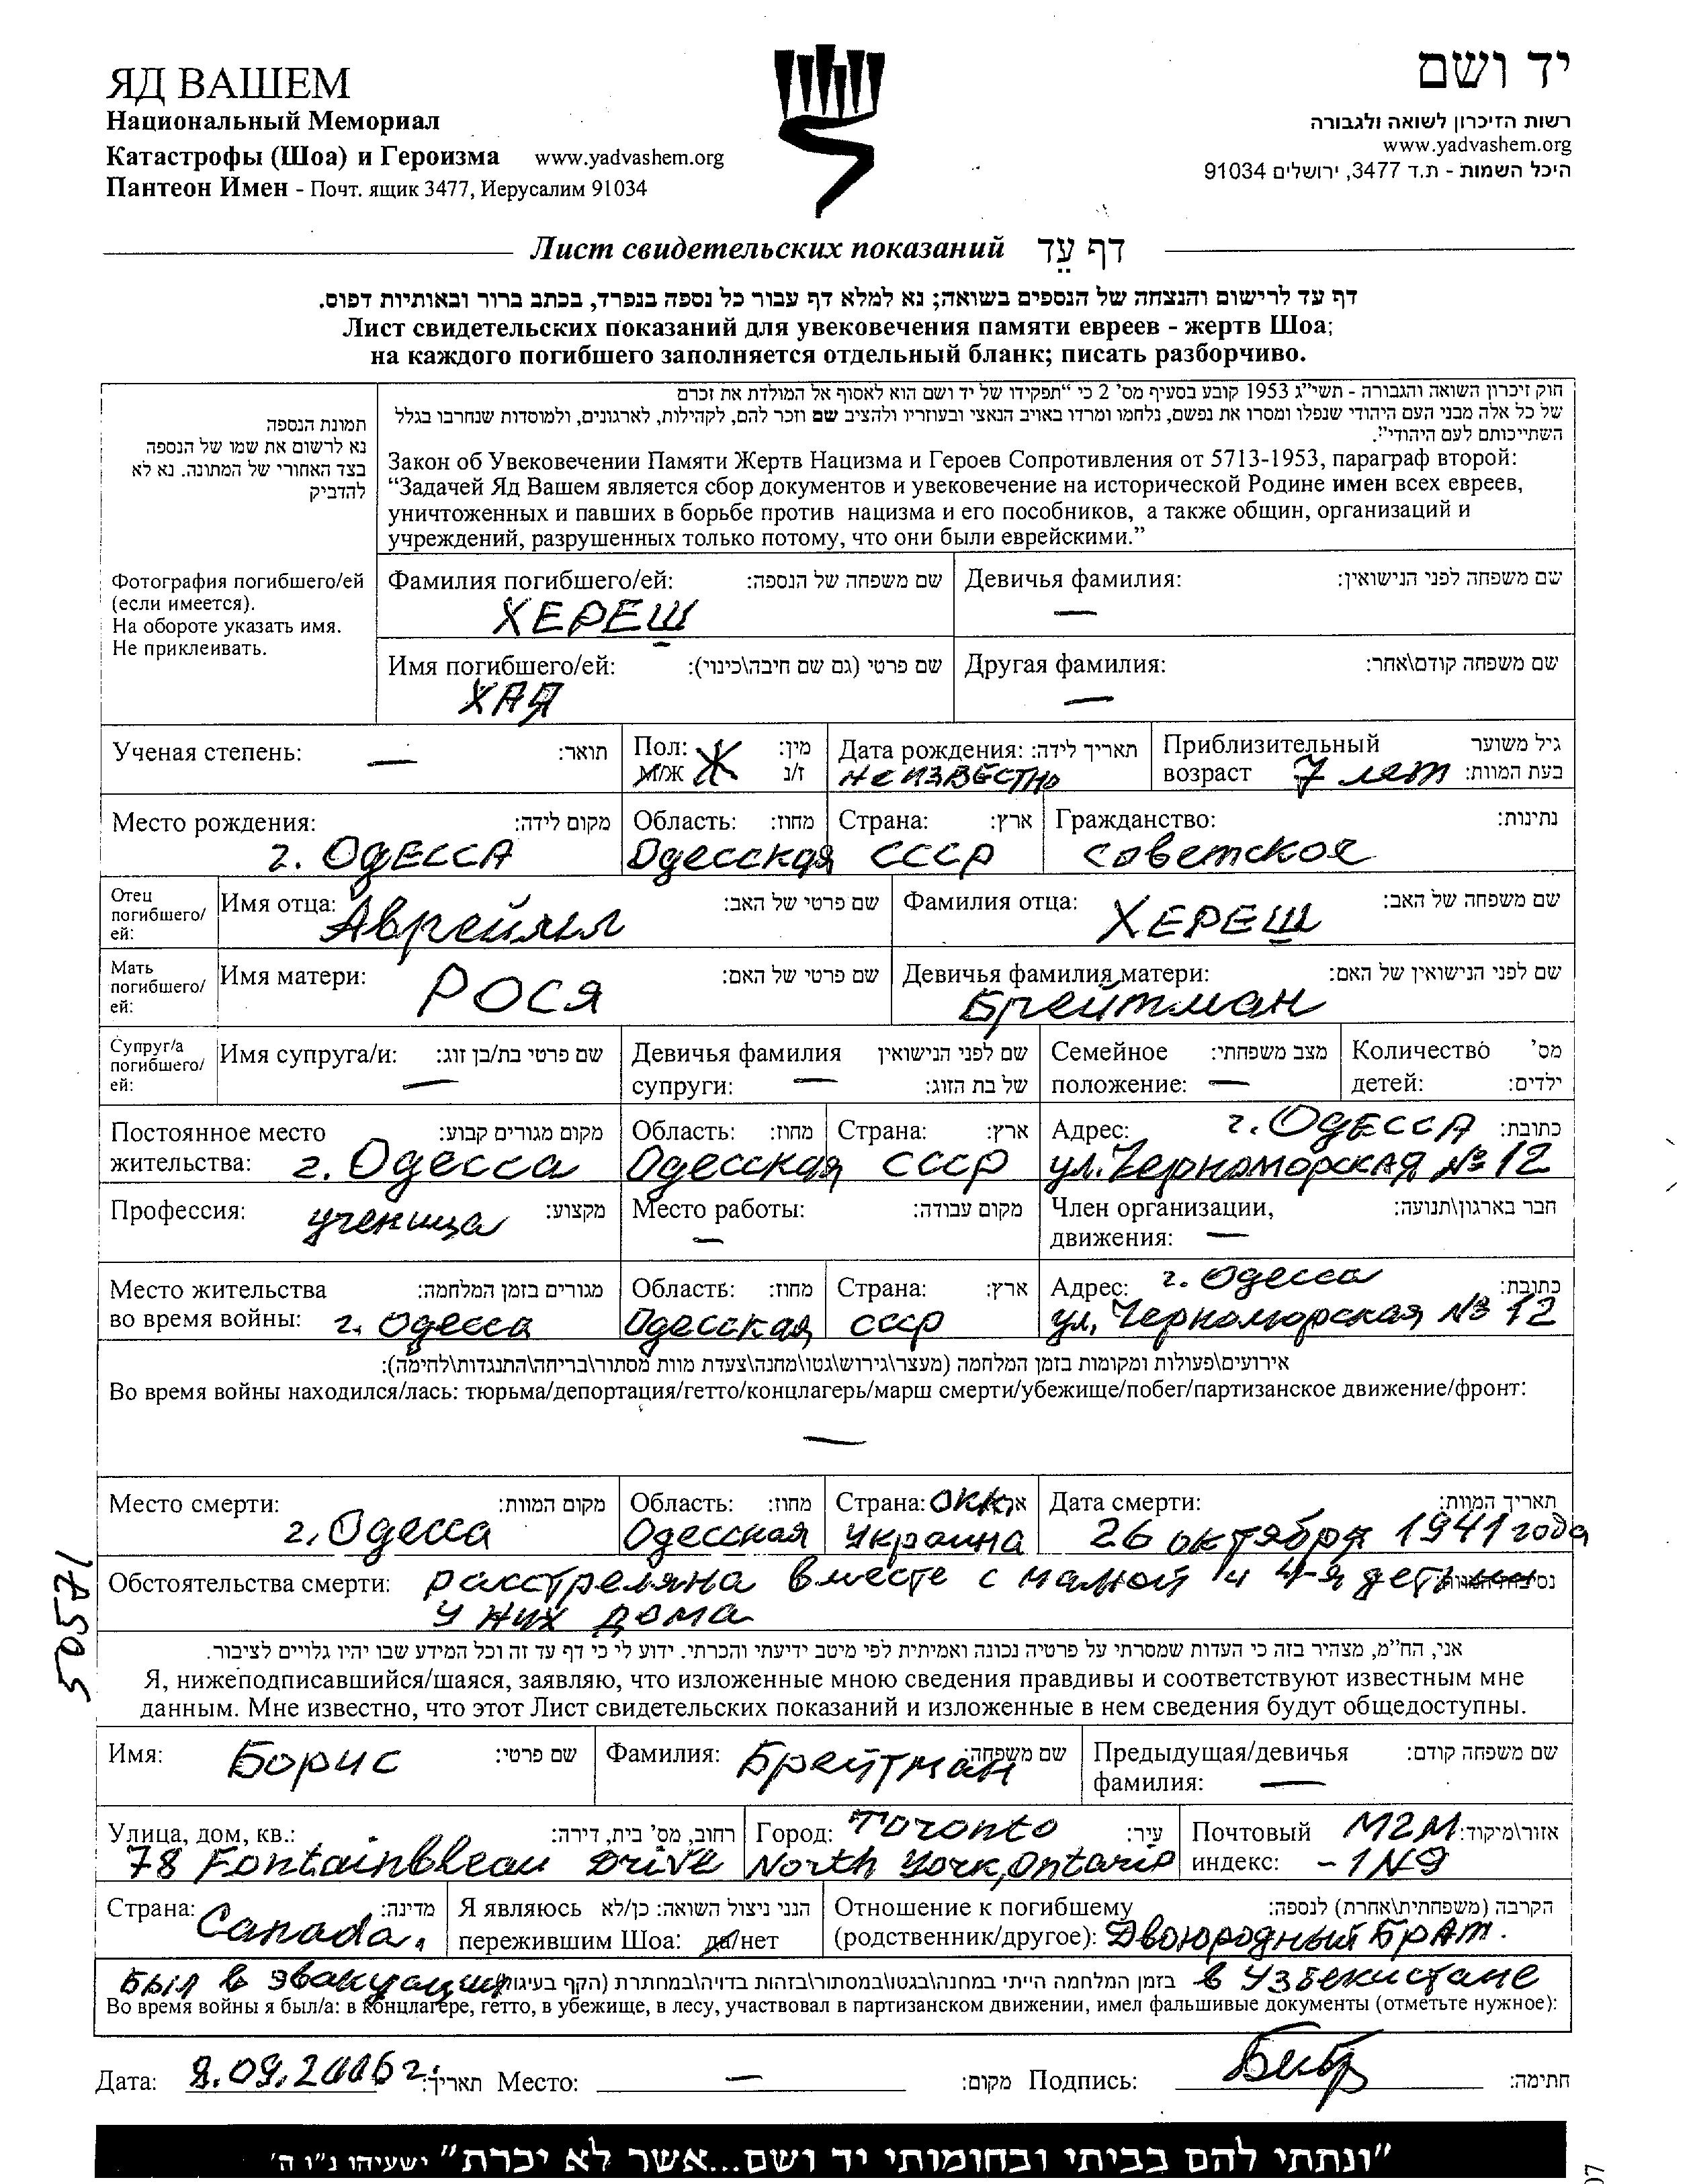 ЯД ВАШЕМ
Национальный Мемориал
Катастрофы (Шоа) и Героизма www.yadvashem.org
Пантеон Имен - Почт. ящик 3477, Иерусалим 91034
יד ושם
רשות הזיכרון לשואה ולגבורה
www.yadvashem.org
היכל השמות - ת.ד 3477, ירושלים 91034
Лист свидетельских показаний דף עֵד
דף עד לרישום והנצחה של הנספים בשואה; נא למלא דף עבור כל נספה בנפרד, בכתב ברור ובאותיות דפוס.
Лист свидетельских показаний для увековечения памяти евреев - жертв Шоа;
на каждого погибшего заполняется отдельный бланк; писать разборчиво.
תמונת הנספה
נא לרשום את שמו של הנספה
בצד האחורי של המתונה. נא לא
להדביק
Фотография погибшего/ей
(если имеется).
На обороте указать имя.
Не приклеивать.
חוק זיכרון השואה והגבורה - תשי"ג 1953 קובע בסעיף מס' 2 כי "תפקידו של יד ושם הוא לאסוף אל המולדת את זכרם
של כל אלה מבני העם היהודי שנפלו ומסרו את נפשם, נלחמו ומרדו באויב הנאצי ובעוזריו ולהציב שם וזכר להם, לקהילות, לארגונים, ולמוסדות שנחרבו בגלל
השתייכותם לעם היהודי".
Закон об Увековечении Памяти Жертв Нацизма и Героев Сопротивления от 5713-1953, параграф второй:
“Задачей Яд Вашем является сбор документов и увековечение на исторической Родине имен всех евреев,
уничтоженных и павших в борьбе против нацизма и его пособников, а также общин, организаций и
учреждений, разрушенных только потому, что они были еврейскими.”
Фамилия погибшего/ей: שם משפחה של הנספה: Девичья фамилия: שם משפחה לפני הנישואין:
ХЕРЕШ —
Имя погибшего/ей: שם פרטי (גם שם חיבה\כינוי): Другая фамилия: שם משפחה קודם\אחר:
ХАЯ —
Ученая степень: — תואר: Пол: Ж מין: Дата рождения: תאריך לידה: Приблизительный גיל משוער
М/Ж ז/נ неизвестно возраст 7 лет בעת המוות:
Место рождения: מקום לידה: Область: מחוז: Страна: ארץ: Гражданство: נתינות:
г. Одесса Одесская СССР советское
Отец погибшего/ей: Имя отца: Аврейма שם פרטי של האב: Фамилия отца: ХЕРЕШ שם משפחה של האב:
Мать погибшего/ей: Имя матери: РОСЯ שם פרטי של האם: Девичья фамилия матери: שם לפני הנישואין של האם:
Брейтман
Супруг/а погибшего/ей: Имя супруга/и: — שם פרטי בת/בן זוג: Девичья фамилия שם לפני הנישואין Семейное מצב משפחתי: Количество מס'
супруги: — של בת הזוג: положение: — детей: ילדים:
Постоянное место מקום מגורים קבוע: Область: מחוז: Страна: ארץ: Адрес: г. Одесса כתובת:
жительства: г. Одесса Одесская СССР ул. Черноморская № 12
Профессия: ученица מקצוע: Место работы: — מקום עבודה: Член организации, חבר בארגון\תנועה:
движения: —
Место жительства מגורים בזמן המלחמה: Область: מחוז: Страна: ארץ: Адрес: г. Одесса כתובת:
во время войны: г. Одесса Одесская СССР ул. Черноморская № 12
אירועים\פעולות ומקומות בזמן המלחמה (מעצר\גירוש\גטו\מחנה\צעדת מוות מסתור\בריחה\התנגדות\לחימה):
Во время войны находился/лась: тюрьма/депортация/гетто/концлагерь/марш смерти/убежище/побег/партизанское движение/фронт:
—
Место смерти: מקום המוות: Область: מחוז: Страна: Дата смерти: תאריך המוות:
г. Одесса Одесская Украина 26 октября 1941 года
Обстоятельства смерти: расстреляна вместе с мамой и 4-я детьми
у них дома
50571
אני, הח"מ, מצהיר בזה כי העדות שמסרתי על פרטיה נכונה ואמיתית לפי מיטב ידיעתי והכרתי. ידוע לי כי דף עד זה וכל המידע שבו יהיו גלויים לציבור.
Я, нижеподписавшийся/шаяся, заявляю, что изложенные мною сведения правдивы и соответствуют известным мне
данным. Мне известно, что этот Лист свидетельских показаний и изложенные в нем сведения будут общедоступны.
Имя: Борис שם פרטי: Фамилия: Брейтман שם משפחה: Предыдущая/девичья שם משפחה קודם:
фамилия: —
Улица, дом, кв.: רחוב, מס' בית, דירה: Город: Toronto עיר: Почтовый M2M אזור\מיקוד:
78 Fontainbleau Drive North York, Ontario индекс: -1N9
Страна: Canada. מדינה: Я являюсь הנני ניצול השואה: כן/לא Отношение к погибшему הקרבה (משפחתית\אחרת) לנספה:
пережившим Шоа: да/нет (родственник/другое): Двоюродный брат.
Был в эвакуации בזמן המלחמה הייתי במחנה\בגטו\במסתור\בזהות בדויה\במחתרת (הקף בעיגול) в Узбекистане
Во время войны я был/а: в концлагере, гетто, в убежище, в лесу, участвовал в партизанском движении, имел фальшивые документы (отметьте нужное):
Дата: 9.09.2006 г. תאריך: Место: — מקום: Подпись: חתימה:
"ונתתי להם בביתי ובחומותי יד ושם...אשר לא יכרת" ישעיהו נ"ו ה'
07